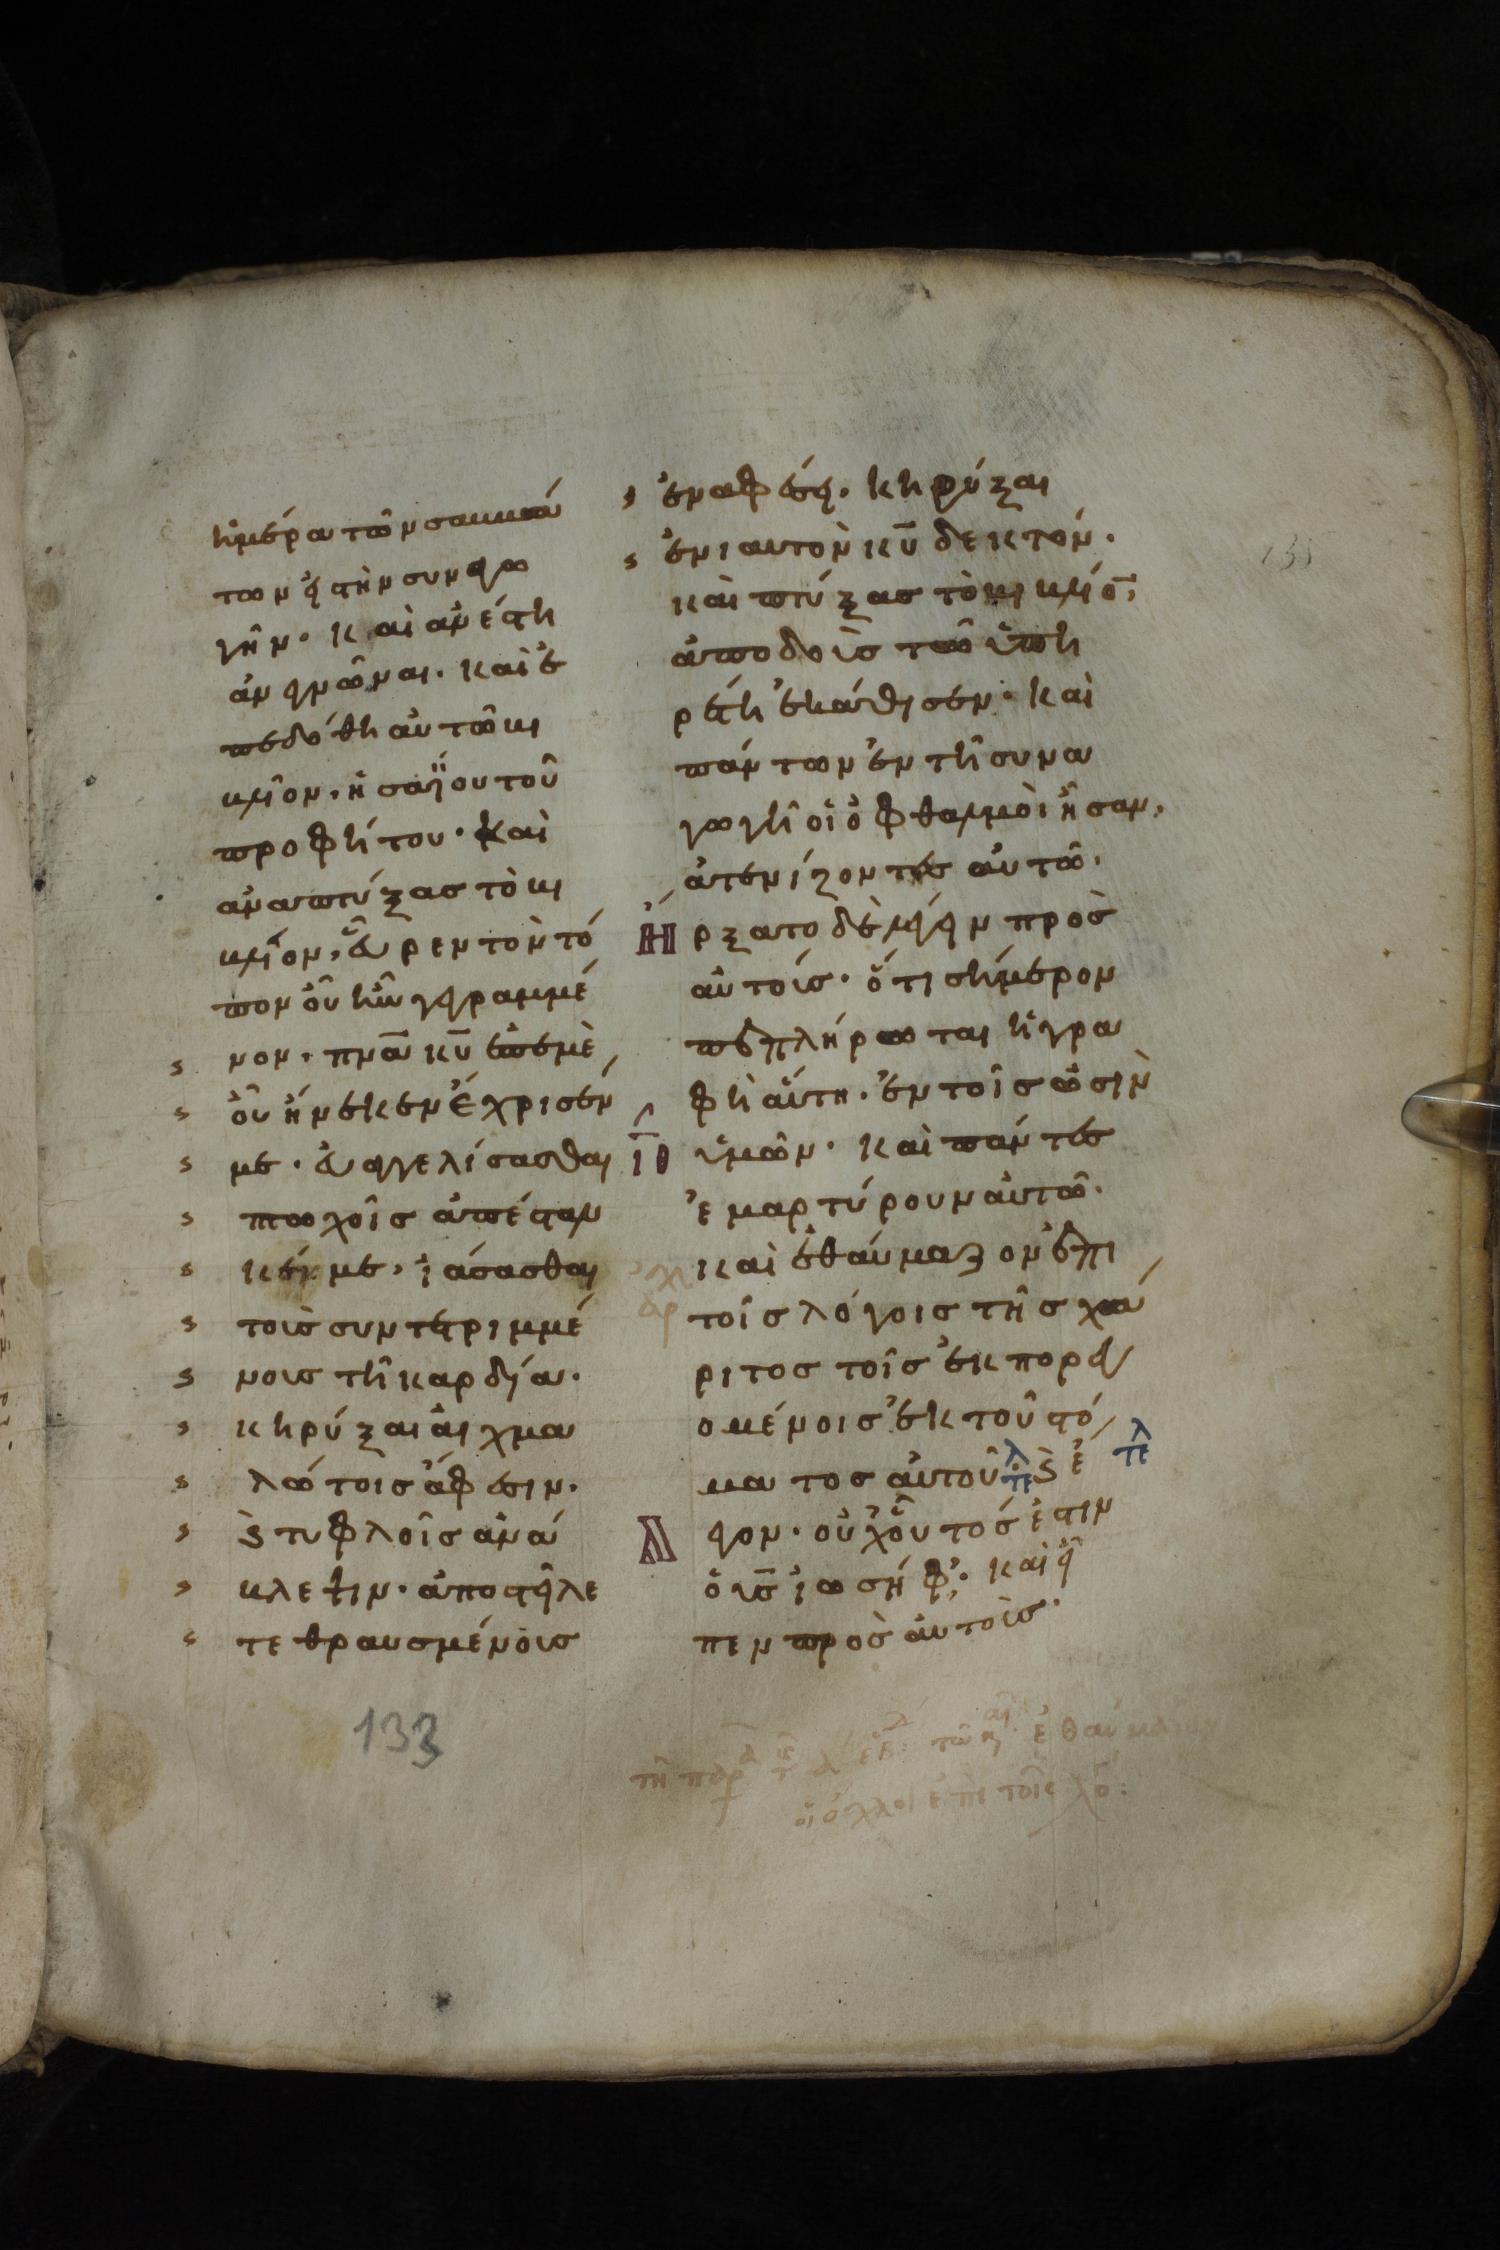 ἡμέρα τῶν σαββά
των εἰς τὴν συναγω
γὴν. καὶ ἀνέστη
ἀναγνῶναι. καὶ ἐ
πεδόθη αὐτῶ βι
βλίον. ἡσαΐου τοῦ
προφήτου. καὶ
ἀναπτύξας τὸ βι
βλίον, εὗρεν τὸν τό
πον οὗ ἦν γεγραμμέ
νον. πνα κυ ἐπ' ἐμὲ
οὗ εἵνεκεν ἔχρισέν
με. εὐαγγελίσασθαι
πτωχοῖς ἀπέσταλ
κέν με. ἰάσασθαι
τοὺς συντετριμμέ
νους τῆ καρδία.
κηρύξαι αἰχμα
λώτοις ἄφεσιν.
ϗ τυφλοῖς ἀνά
βλεψιν. ἀποστεῖλε
τεθραυσμένους
ἐν ἀφέσει. κηρύξαι
ἐνιαυτὸν κυ δεκτόν.
καὶ πτύξας τὸ βιβλίο,
ἀποδοὺς τῶ ὑπη
ρέτη ἐκάθισεν. καὶ
πάντων ἐν τῆ συνα
γωγῆ οἱ ὀφθαλμοὶ ἦσαν,
ἀτενίζοντες αὐτῶ.
Ἤρξατο δὲ λέγειν πρὸς
αὐτούς. ὅτι σήμερον
πεπλήρωται ἡ γρα
φὴ αὕτη. ἐν τοῖς ὠσὶν
ὑμῶν. καὶ πάντες
ιθ
ἐμαρτύρουν αὐτῶ.
καὶ ἐθαύμαζον ἐπὶ
τοῖς λόγοις τῆς χά
ριτος τοῖς ἐκπορευ
ομένοις ἐκ τοῦ στό
ματος αὐτοῦ ϗ ἔ
λεγον. οὐχ οὗτός ἐστιν
ὁ υς ἰωσήφ; καὶ εἶ
πεν πρὸς αὐτούς.
133